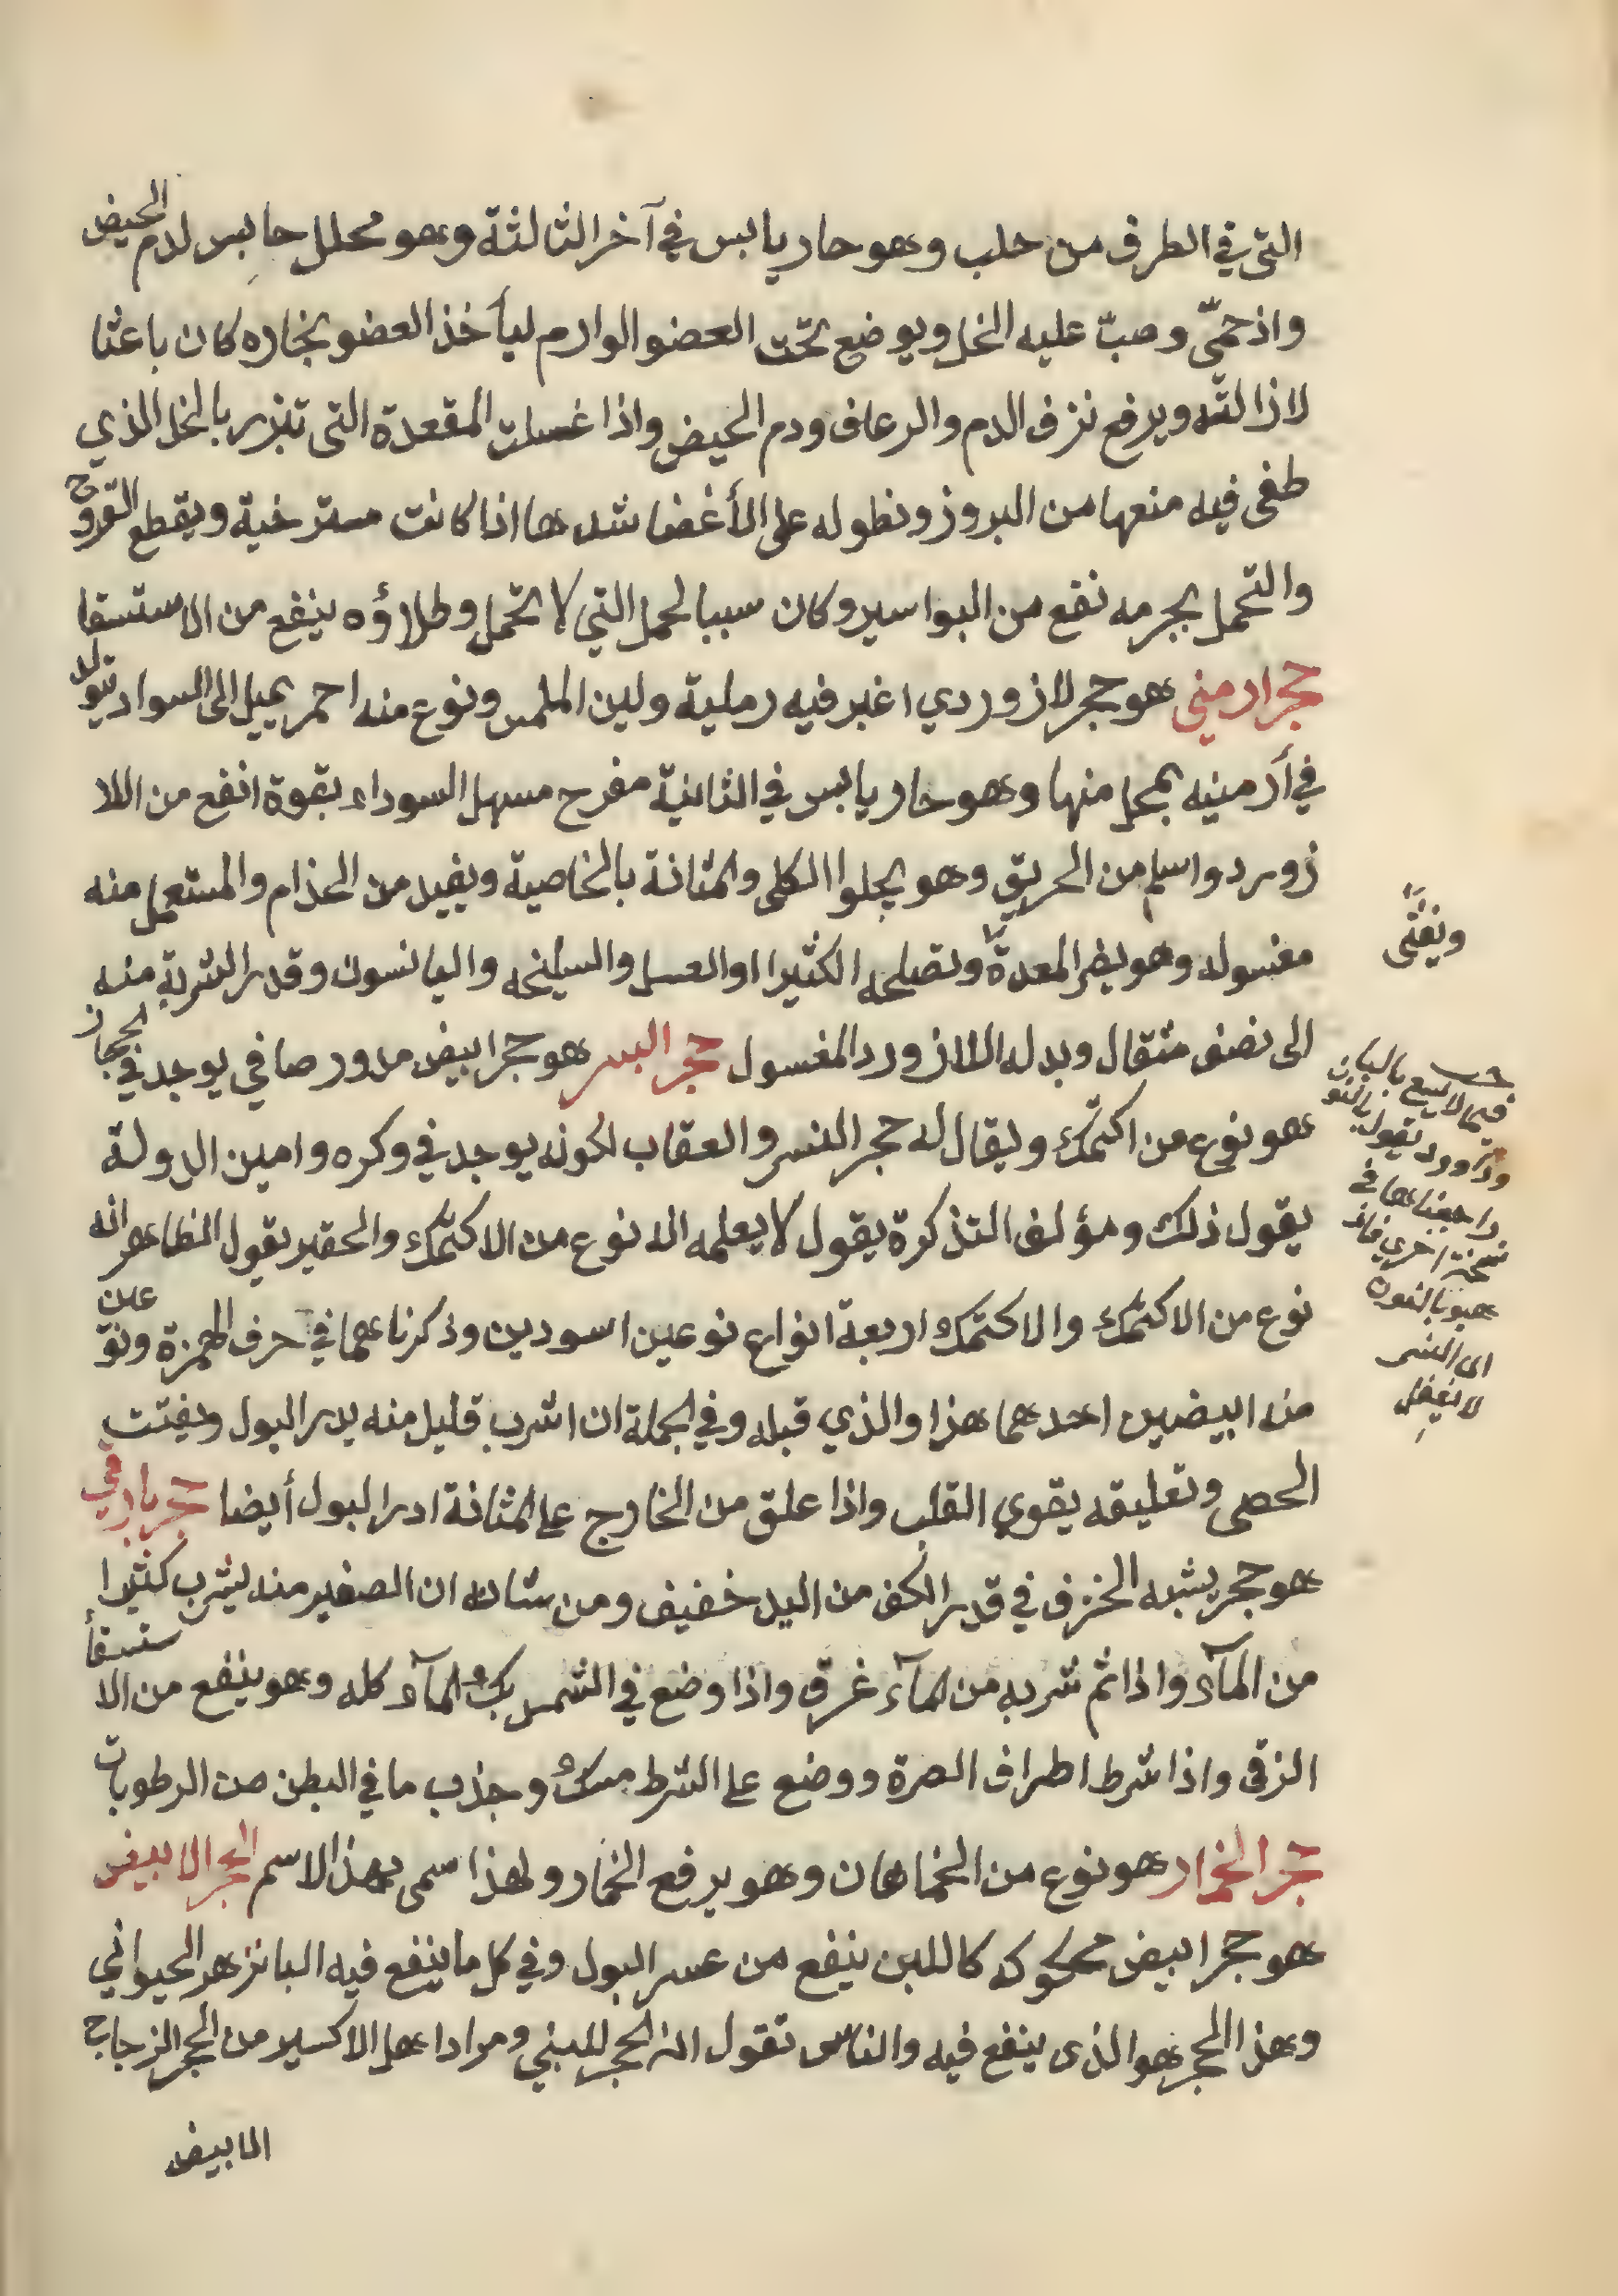 التي في الطرف من حلب وهو حار يابس في آخر الثالثة وهو محلل حابس لدم الحيض
واذ حمّي وصبّ عليه الخل ويوضع تحت العضو الوارم ليأخذ العضو بخاره كان باعثا
لازالته ويرفع نزف الدم والرعاف ودم الحيض واذا غسلت المقعدة التى تبزر بالخل الذي
طفى فيه منعها من البروز ونطوله على الأغضا شدها اذا كانت مسترخية ويقطع القروح
والتحمل بجرمه نفع من البواسير وكان سببا لحمل التي لا تحمل وطلاؤه ينفع من الاستسقا
حجر ارمني هو حجر لازوردي اغبر فيه رملية ولين الملمس ونوع منه احمر يميل الى السواد يتولد
في أرمنيه بمحل منها وهو حار يابس في الثانية مفرح مسهل السوداء بقوة انفع من اللا
زورد واسلم من الحربق وهو يجلوا الكلى والمثانة بالخاصية ويفيد من الجذام والمستعمل منه
مغسوله وهو يضر المعدة وتصلحه الكثيرا او العسل والسليخه واليانسون وقدر الشربة منه
الى نصف مثقال وبدله اللازورد المغسول حجر البسر هو حجر ابيض مدور صافي يوجد في الحجاز
هو نوع من اكتمك ويقال له حجر النسر والعقاب لكونه يوجد في وكره وامين الدولة
يقول ذلك ومؤلف التذكرة يقول لا يعلمه الا نوع من الاكتمك والحقير يقول الظاهر انه
نوع من الاكتمك والاكتمك اربعة انواع نوعين اسودين وذكرناهما في حرف الهمزة ونوعين
من ابيضين احدهما هذا والذي قبله وفي الجملة ان اشرب قليل منه يدر البول ويفتت
الحصى وتعليقه يقوي القلب واذا علق من الخارج على المثانة ادر البول أيضا حجر بارقي
هو حجر يشبه الخزف في قدر الكف من اليد خفيف ومن شانه ان الصغير منه يشرب كثيرا
من المآء واذا تم شربه من المآء غرق واذا وضع في الشمس بك المآء كله وهو ينفع من الاستسقأ
الزقى واذا شرط اطراف الصرة ووضع على الشرط مسك وجذب ما في البطن من الرطوبات
حجر الخمار هو نوع من الخماهان وهو يرفع الخمار ولهذا سمى بهذا الاسم الحجر الابيض
هو حجر ابيض محكوكه كاللبن ينفع من عسر البول وفي كل ما ينفع فيه البانزهر الحيواني
وهذا الحجر هو الذى ينفع فيه والناس تقول انه الحجر اللبني ومراد اهل الاكسير من الحجر الزجاج
الابيض
ويغثى
وداوود يقول بالنو
راجعناها في
نسخة اخرى فاذ
هو بالنون
اى النسر
لا تغفل